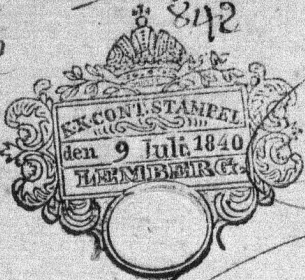 842
K.K.CONT.STAMPEL
den 9 Juli 1840
LEMBERG.